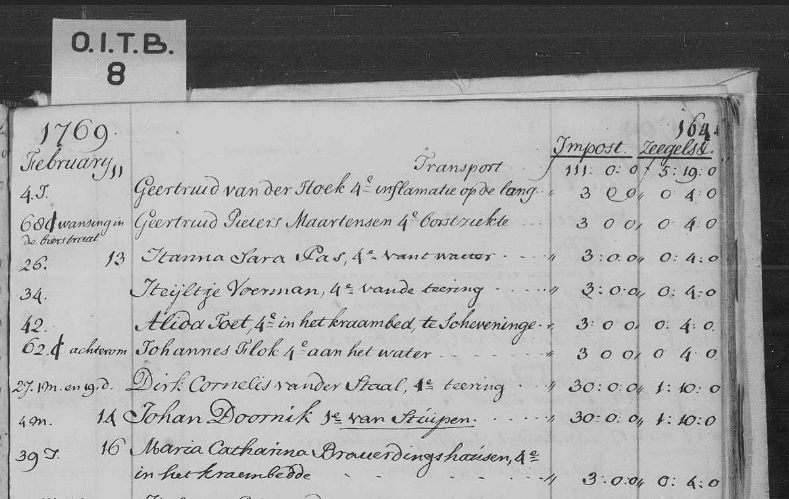 O.I.T.B.
8
1769. 164.
February 11 Transport Impost. Zeegels.
ƒ 111: 0: 0 ƒ 5: 19: 0
4. J. Geertruid van der Hoek 4e inflamatie op de long " 3 0 0 " 0 4 0
68 wansing in de bierstraat Geertruid Pieters Maartensen 4e borstziekte " 3 0 0 " 0 4 0
26. 13 Hanna Sara Pas, 4e want water " 3: 0: 0 " 0: 4: 0
34. Heijltje Voerman, 4e vande teering " 3: 0: 0 " 0: 4: 0
42. Alida Toet, 4e in het kraambed, te Scheveninge " 3: 0 0 " 0: 4: 0.
62. achterom Johannes Flok 4e aan het water " 3 0 0 " 0 4 0
27 J. 1 m. en 19 d. Dirk Cornelis vander Staal, 1e teering " 30: 0: 0 " 1: 10: 0
4 m. 14 Johan Doornik 1e van Stuipen. " 30: 0: 0 " 1: 10: 0
39 J. 16 Maria Catharina Brouerdingshausen, 4e
in het kraembedde " 3: 0: 0 " 0: 4: 0